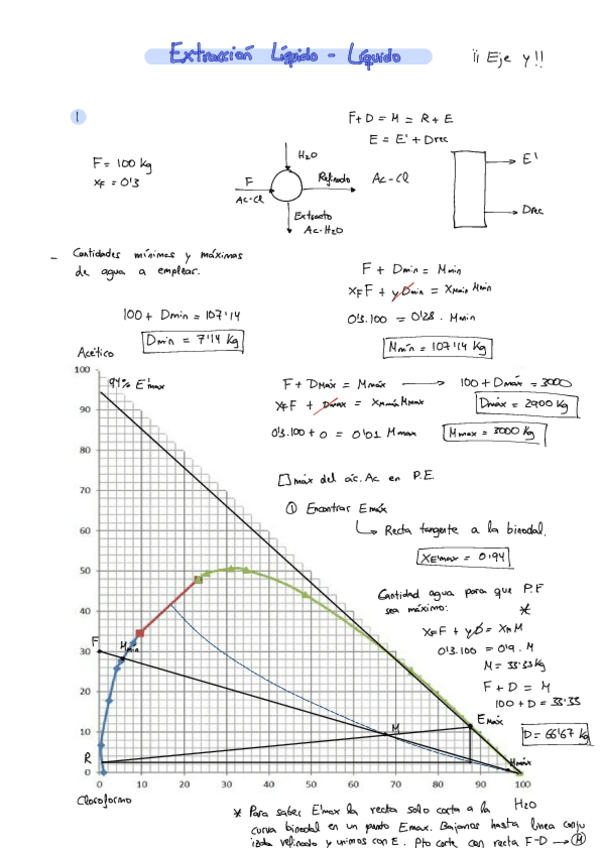 Extracción Líquido - Líquido
¡¡ Eje y !!
1
F + D = M = R + E
E = E' + Drec
F = 100 kg
xF = 0'3
H2O
F
Ac-Cl
Refinado
Ac-Cl
Extracto
Ac-H2O
E'
Drec
- Cantidades mínimas y máximas
de agua a emplear.
F + Dmin = Mmin
xF F + y Dmin = xMmin Mmin
0'3.100 = 0'28 . Mmin
Mmín = 107'14 kg
100 + Dmin = 107'14
Dmin = 7'14 kg
F + DMax = Mmáx → 100 + Dmáx = 3000
xF F + Dmax = xMmáx Mmax
Dmáx = 2900 kg
0'3.100 + 0 = 0'01 Mmax
Mmax = 3000 kg
[ ] máx del ác. Ac en P.E
① Encontrar Emáx
↳ Recta tangente a la binodal.
XE'max = 0'94
Cantidad agua para que P.F
sea máximo: *
xF F + y D = xM M
0'3.100 = 0'9 . M
M = 33'33 kg
F + D = M
100 + D = 33'33
D = 66'67 kg
Acético
94% E'max
100
90
80
70
60
50
40
30
20
10
0
F
Mmin
R
M
Emáx
Mmáx
0 10 20 30 40 50 60 70 80 90 100
Cloroformo
H2O
* Para saber E'max la recta solo corta a la
curva binodal en un punto Emax. Bajamos hasta linea conju
refinado y unimos con E. Pto corte con recta F-D → M